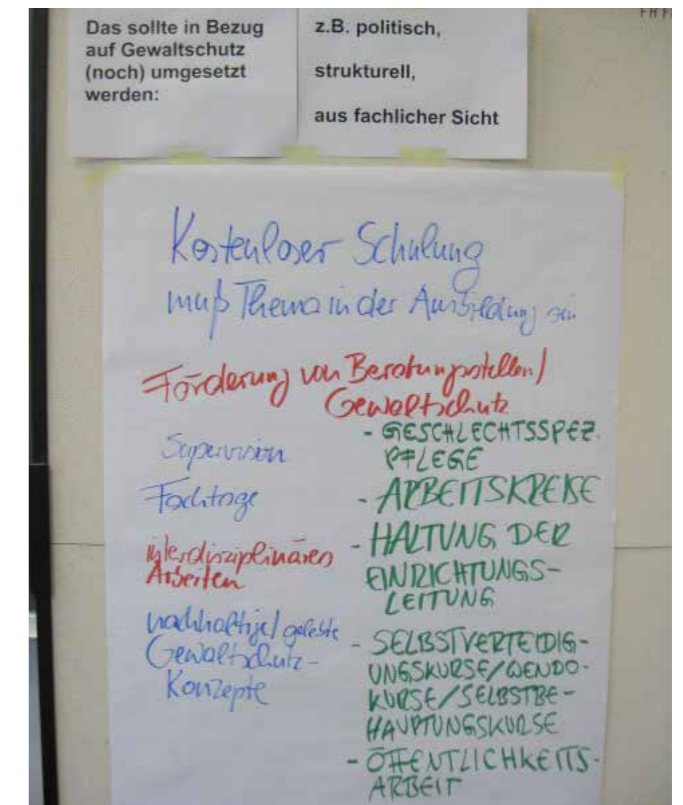 Das sollte in Bezug
auf Gewaltschutz
(noch) umgesetzt
werden:
z.B. politisch,
strukturell,
aus fachlicher Sicht
Kostenloser Schulung
muß Thema in der Ausbildung sein
Förderung von Beratungsstellen/
Gewaltschutz
Supervision
Fachtage
interdisziplinären
Arbeiten
nachhaltige/ gelebte
Gewaltschutz-
Konzepte
- GESCHLECHTSSPEZ.
PFLEGE
- ARBEITSKREISE
- HALTUNG DER
EINRICHTUNGS-
LEITUNG
- SELBSTVERTEIDIG-
UNGSKURSE/WENDO-
KURSE/SELBSTBE-
HAUPTUNGSKURSE
- ÖFFENTLICHKEITS-
ARBEIT